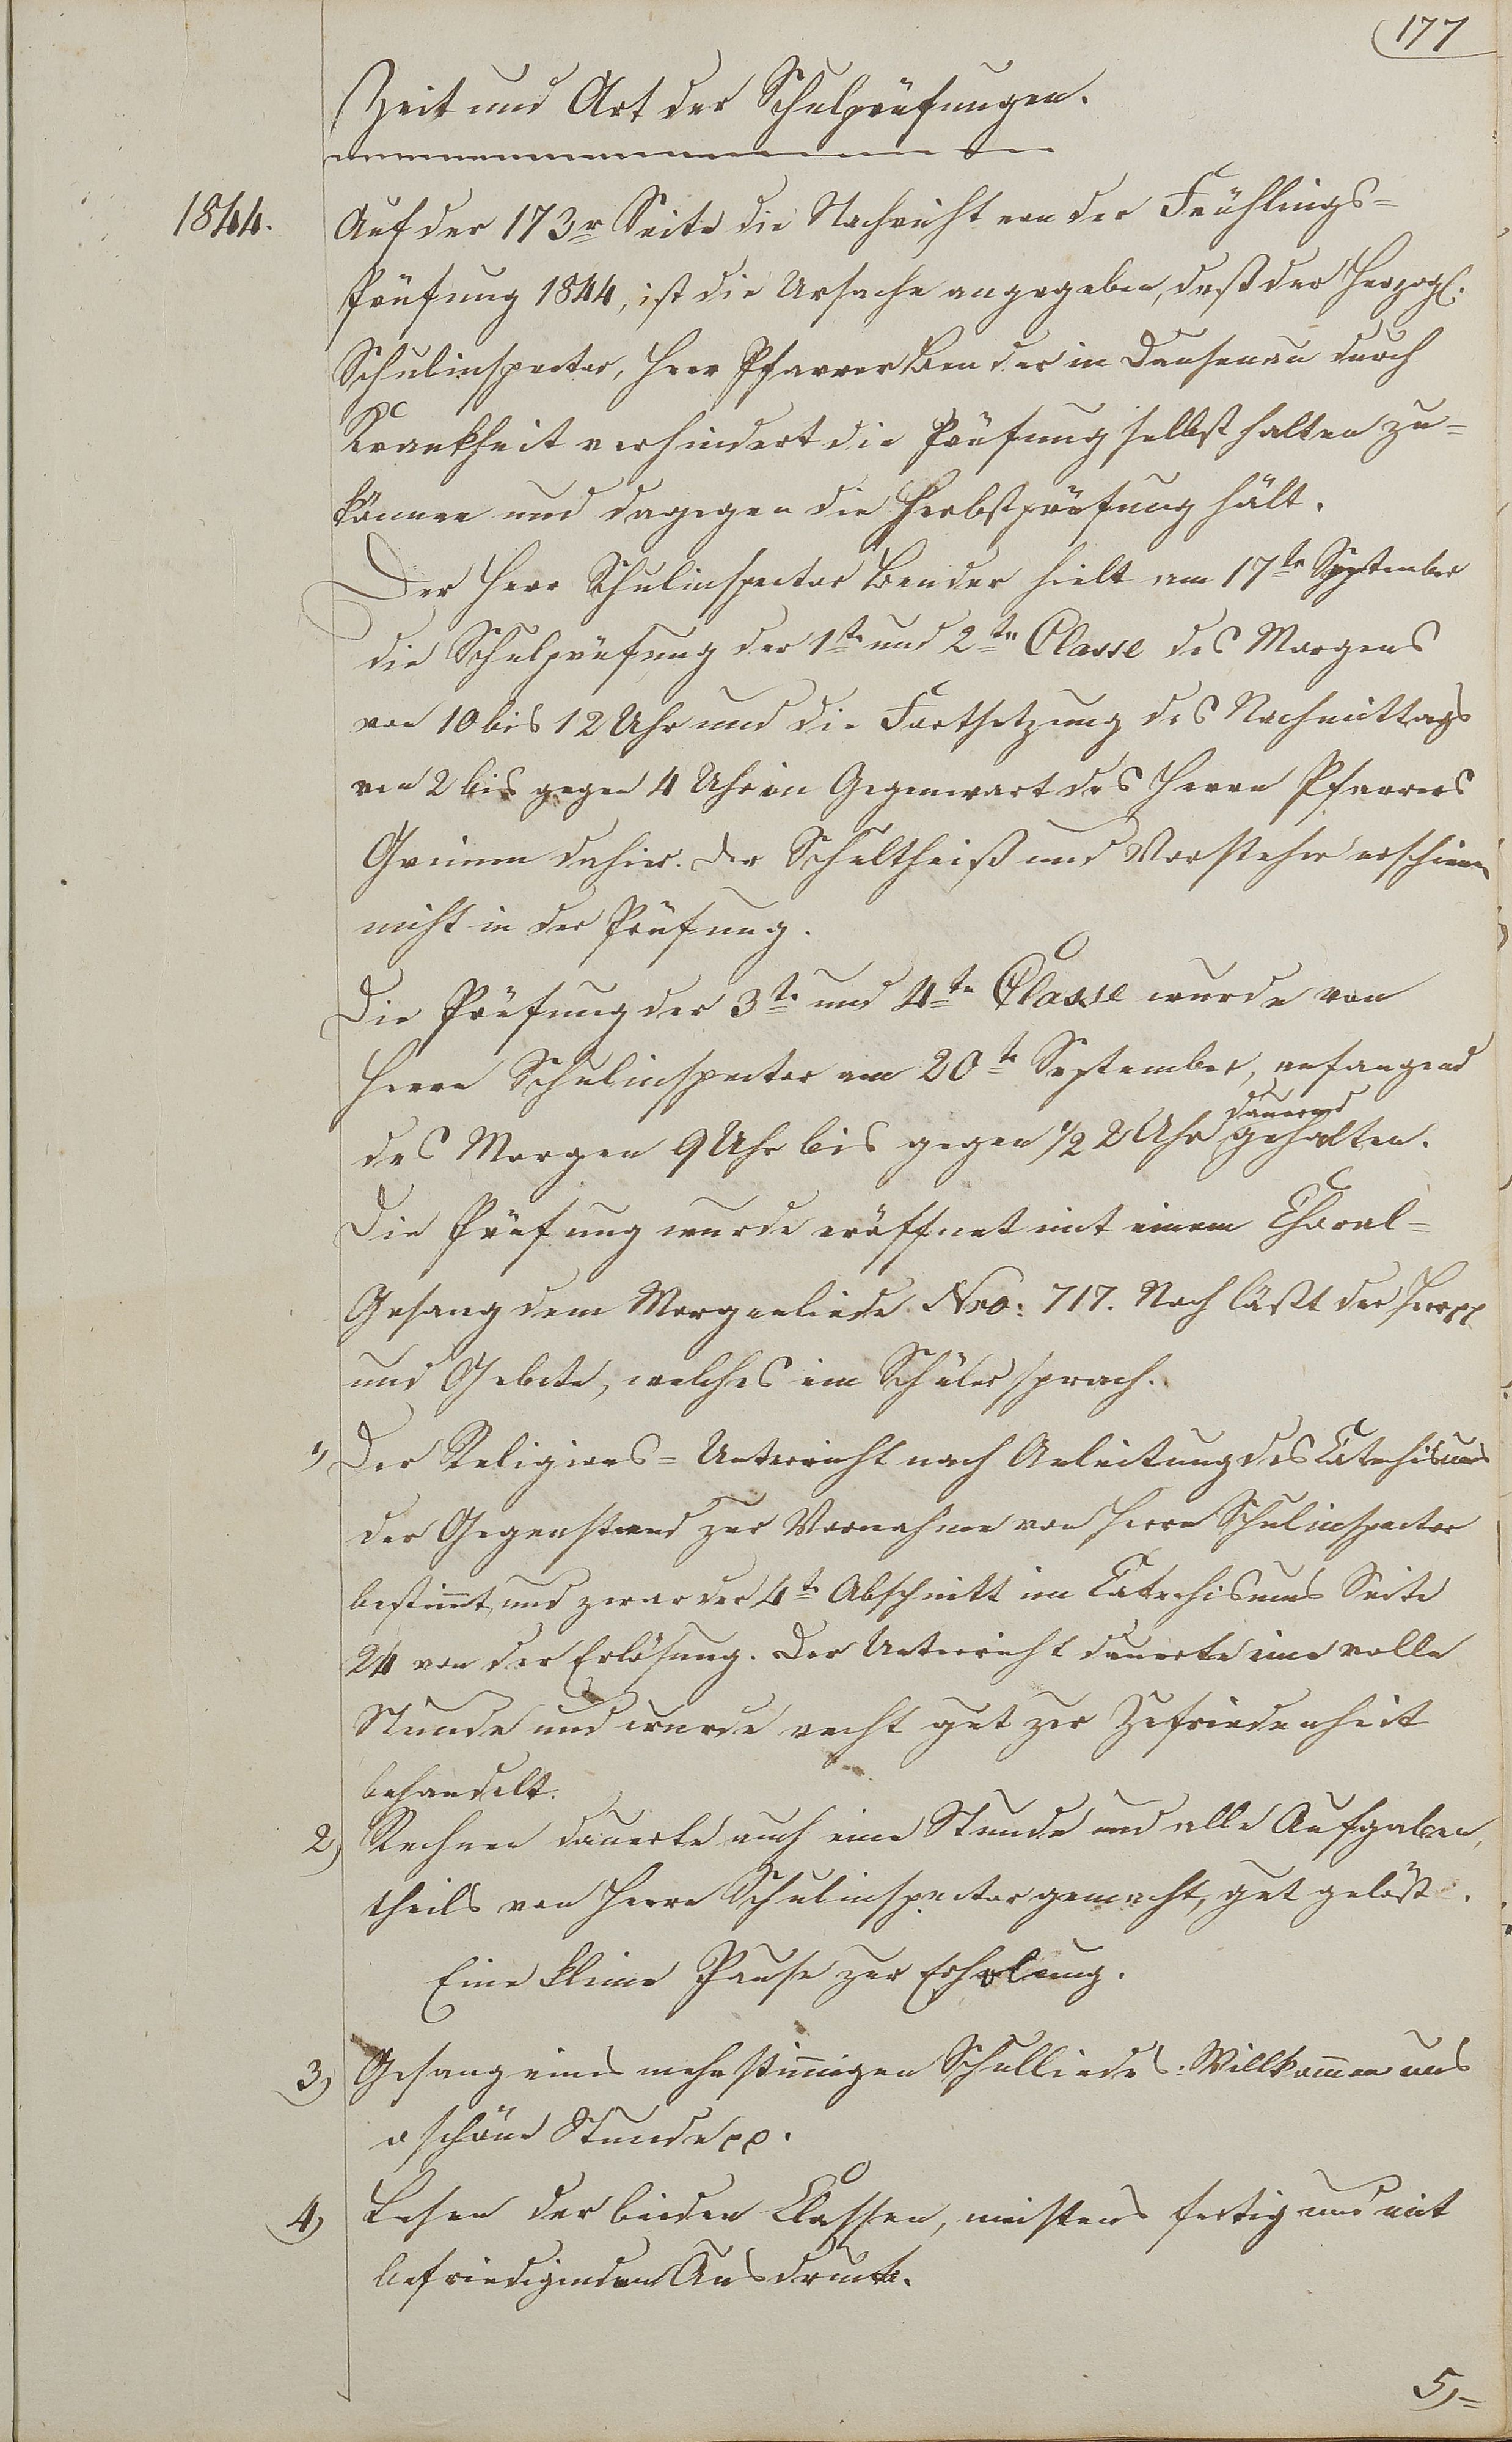 177
Zeit und Art der Schulprüfungen.
1844.
Auf der 173r Seite die Nachricht von der Frühlings=
Prüfung 1844, ist die Ursache angegeben, daß der Herzogl.
Schulinspector, Herr Pfarrer Bender in Dausenau durch
Krankheit verhindert die Prüfung selbst halten zu=
können und dagegen die Herbstprüfung hält.
Der Herr Schulinspector Bender hielt am 17te September
die Schulprüfung der 1te und 2te Classe des Morgens
von 10 bis 12 Uhr und die Fortsetzung des Nachmittags
von 2 bis gegen 4 Uhr in Gegenwart des Herrn Pfarrers
Grimm dahier. Der Schultheiß und Vorsteher erschienen
nicht in der Prüfung.
Die Prüfung der 3te und 4te Classe wurde von
Herrn Schulinspector am 20te September, anfangend
dauernd
des Morgen 9 Uhr bis gegen 1/2 2 Uhr gehalten.
Die Prüfung wurde eröffnet mit einem Choral=
Gesang dem Morgenliede Nro: 717. Noch läßt der Herr pp
und Gebete, welches ein Schüler sprach.
1) Der Religions=Unterricht nach Anleitung des Catechismus
der Gegenstand zur Vornahme von Herrn Schulinspector
bestimt, und zwar der 4te Abschnitt im Catechismus Seite
24 von der Erlösung. Der Unterricht dauerte eine volle
Stunde und wurde recht gut zur Zufriedenheit
behandelt.
2) Rechnen dauerte auch eine Stunde und alle Aufgaben,
theils von Herrn Schulinspector gemacht, gut gelöst.
Eine kleine Pause zur Erholung.
3) Gesang eines mehrstimigen Schulliedes: Willkomen uns
o schöne Stunde pp.
4) Lesen der beiden Classen, meistens fertig und mit
befriedigendem Ausdruck.
5)=